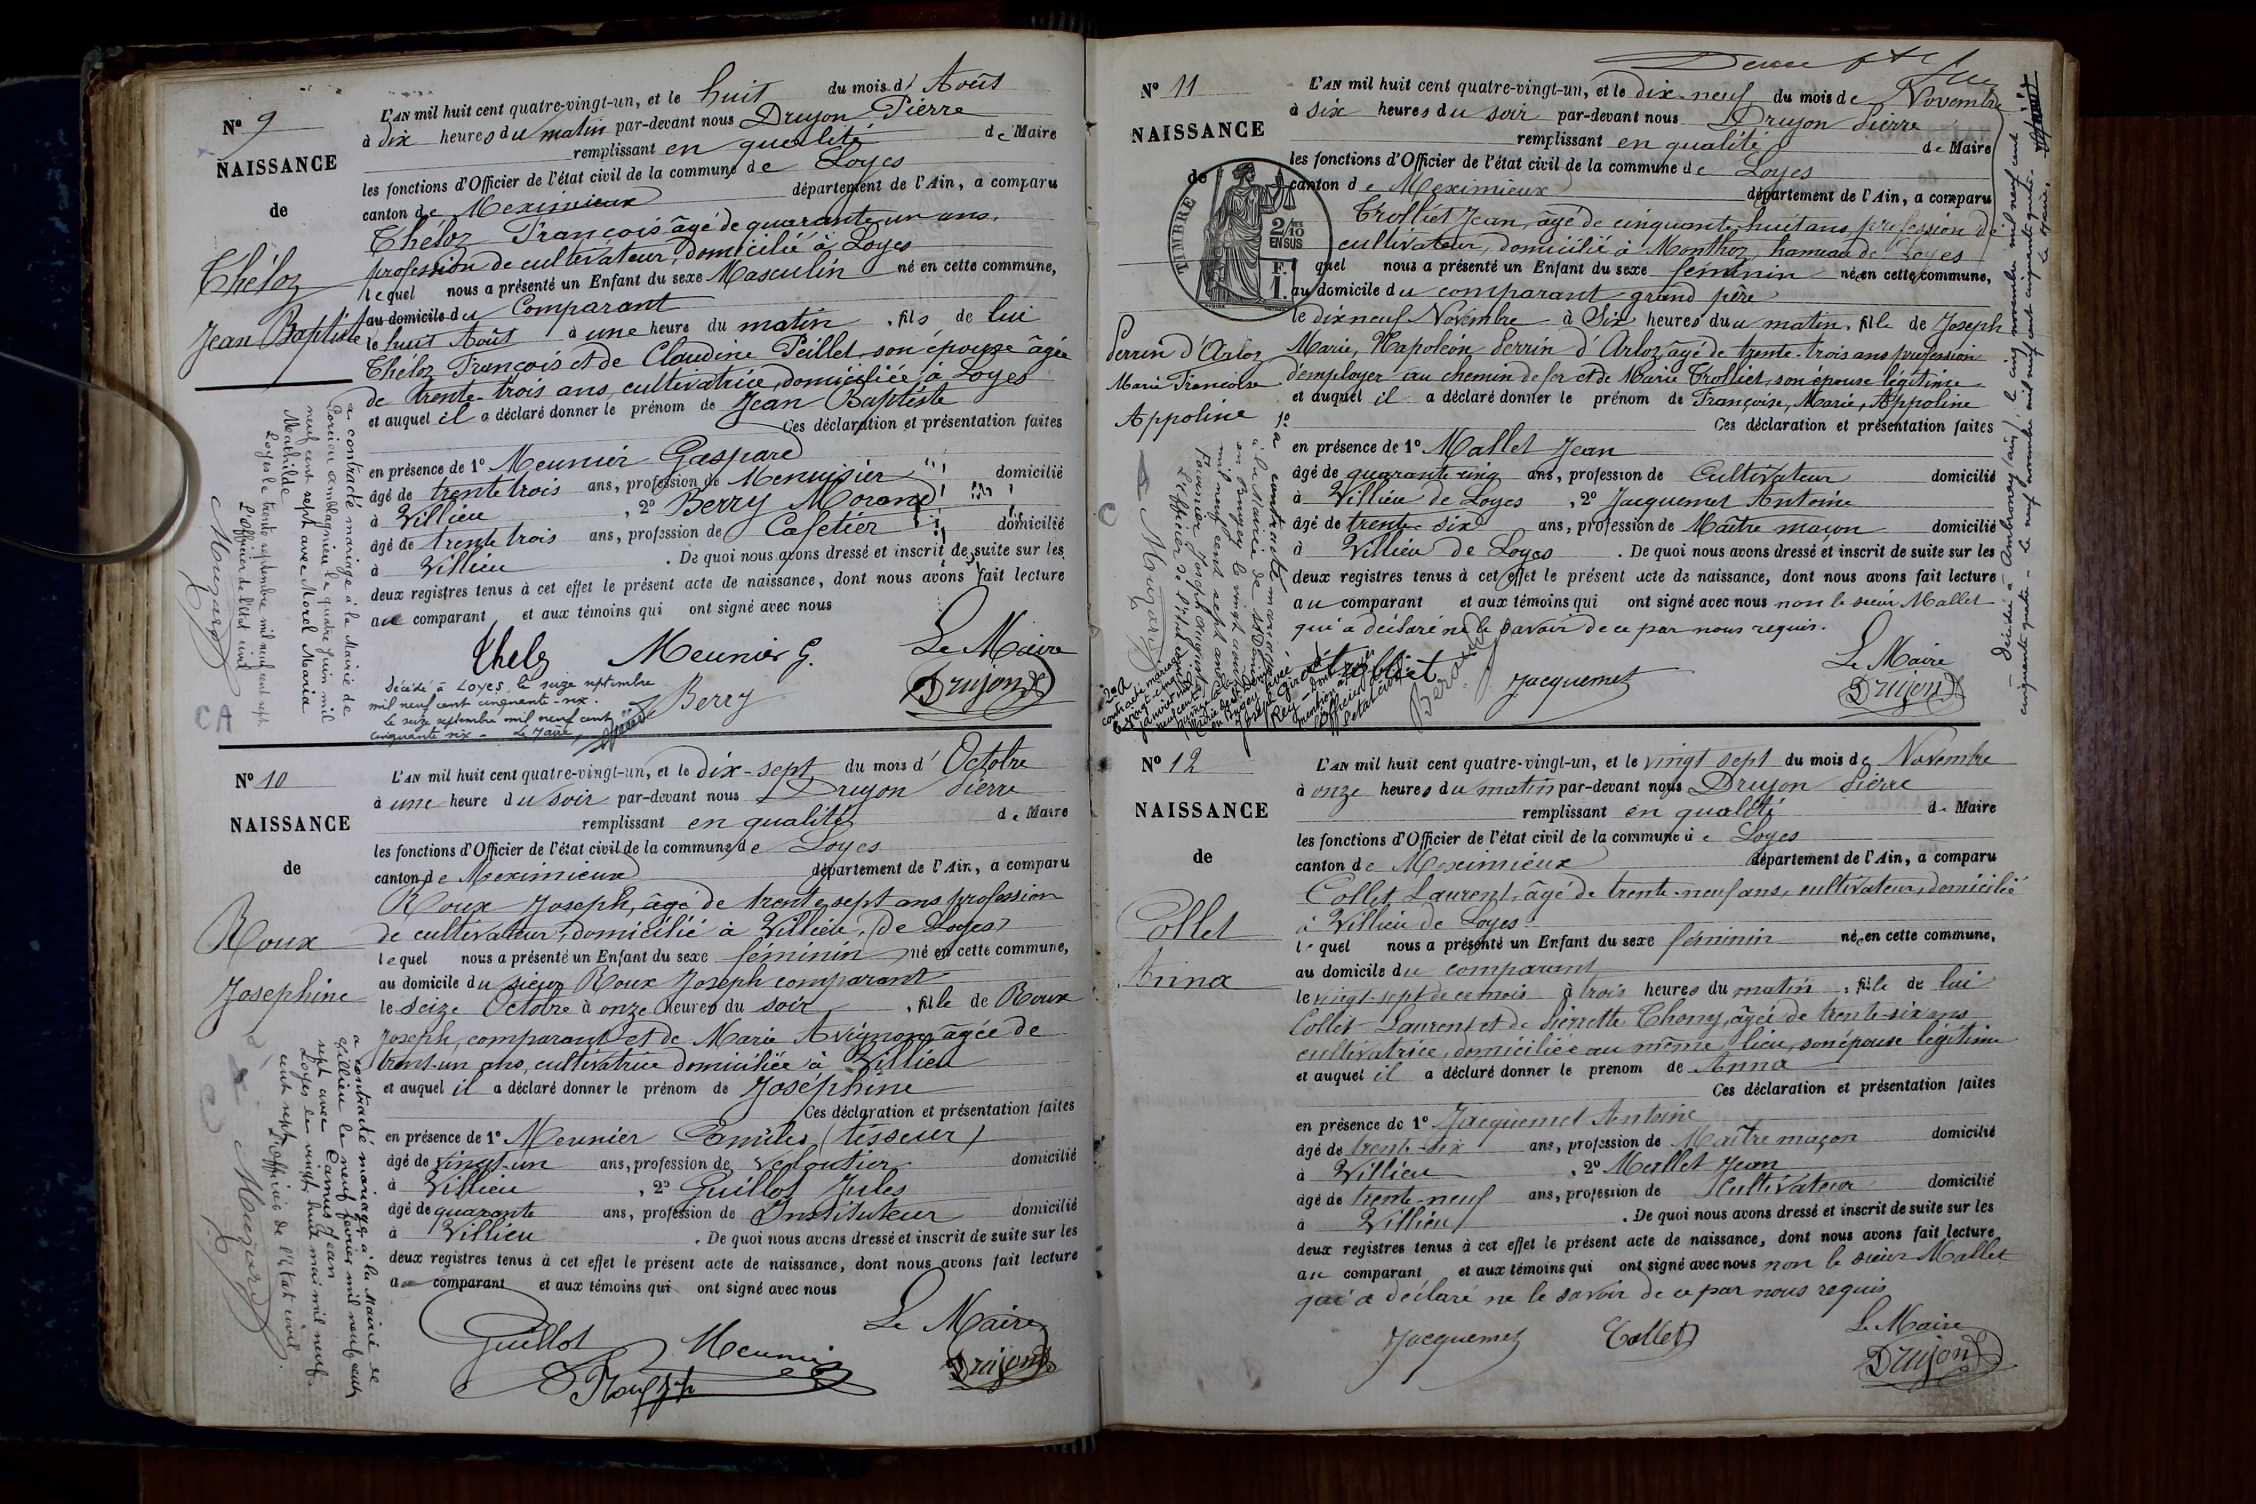 Nº 9
NAISSANCE
de
Théloz
Jean Baptiste
L'AN mil huit cent quatre-vingt-un, et le huit du mois d'Août
à dix heures du matin par-devant nous Drujon Pierre
remplissant en qualité de Maire
les fonctions d'Officier de l'état civil de la commune de Loyes
canton de Meximieux département de l'Ain, a comparu
Théloz François âgé de quarante un ans,
profession de cultivateur, domicilié à Loyes
lequel nous a présenté un Enfant du sexe Masculin né en cette commune,
au domicile du Comparant
le huit Août à une heure du matin, fils de lui
Théloz François et de Claudine Peillet, son épouse âgée
de trente-trois ans, cultivatrice, domiciliée à Loyes
et auquel il a déclaré donner le prénom de Jean Baptiste
Ces déclaration et présentation faites
en présence de 1º Meunier Gaspard
âgé de trente trois ans, profession de Menuisier domicilié
à Villieu, 2º Berry Morand
âgé de trente trois ans, profession de Cafetier domicilié
à Villieu. De quoi nous avons dressé et inscrit de suite sur les
deux registres tenus à cet effet le présent acte de naissance, dont nous avons fait lecture
au comparant et aux témoins qui ont signé avec nous
Theloz Meunier G. Le Maire
Berry Drujon
a contracté mariage à la Mairie de
le quatre juin mil
neuf cent sept avec Morel Maria
Mathilde
Loyes le trente septembre mil neuf cent sept
L'officier de l'état civil
Décédé à LOYES, le seize septembre
mil neuf cent cinquante-six.
Le seize septembre mil neuf cent
cinquante six - Le Maire,
CA
Nº 10
NAISSANCE
de
Roux
Josephine
L'AN mil huit cent quatre-vingt-un, et le dix-sept du mois d'Octobre
à une heure du soir par-devant nous Drujon Pierre
remplissant en qualité de Maire
les fonctions d'Officier de l'état civil de la commune de Loyes
canton de Meximieux département de l'Ain, a comparu
Roux Joseph, âgé de trente sept ans profession
de cultivateur, domicilié à Villieu, (de Loyes)
lequel nous a présenté un Enfant du sexe féminin né en cette commune,
au domicile du sieur Roux Joseph comparant
le seize Octobre à onze heures du soir, fille de Roux
Joseph, comparant et de Marie Avignon âgée de
trent-un ans, cultivatrice domiciliée à Villieu
et auquel il a déclaré donner le prénom de Joséphine
Ces déclaration et présentation faites
en présence de 1º Meunier Emiles (tisseur)
âgé de vingt-un ans, profession de veloutier domicilié
à Villieu, 2º Guillot Jules
âgé de quarante ans, profession de Instituteur domicilié
à Villieu. De quoi nous avons dressé et inscrit de suite sur les
deux registres tenus à cet effet le présent acte de naissance, dont nous avons fait lecture
au comparant et aux témoins qui ont signé avec nous
Le Maire
Guillot Meunier Drujon
a contracté mariage à la Mairie de
Villieu le neuf février mil neuf cent
sept avec Camus Jean
Loyes le vingt huit mai mil neuf
cent sept
L'officier de l'état civil
Nº 11
NAISSANCE
de
TIMBRE
2/10
EN SUS
Perrin d'Arloz
Marie Françoise
Appoline
L'AN mil huit cent quatre-vingt-un, et le dix-neuf du mois de Novembre
à six heures du soir par-devant nous Drujon Pierre
remplissant en qualité de Maire
les fonctions d'Officier de l'état civil de la commune de Loyes
canton de Meximieux département de l'Ain, a comparu
Trolliet Jean, âgé de cinquante-huit ans, profession de
cultivateur, domicilié à Monthoz, hameau de Loyes
quel nous a présenté un Enfant du sexe féminin née en cette commune,
au domicile du comparant grand père
le dix neuf Novembre à Six heures du matin, fille de Joseph
Marie, Napoléon Perrin d'Arloz, âgé de trente-trois ans profession
d'employer au chemin de fer et de Marie Trolliet, son épouse légitime
et auquel il a déclaré donner le prénom de Françoise, Marie, Appoline
Ces déclaration et présentation faites
en présence de 1º Mallet Jean
âgé de quarante cinq ans, profession de Cultivateur domicilié
à Villieu de Loyes, 2º Jacquemet Antoine
âgé de trente-six ans, profession de Maître maçon domicilié
à Villieu de Loyes. De quoi nous avons dressé et inscrit de suite sur les
deux registres tenus à cet effet le présent acte de naissance, dont nous avons fait lecture
au comparant et aux témoins qui ont signé avec nous non le sieur Mallet
qui a déclaré ne le savoir de ce par nous requis.
Trolliet Jacquemet Le Maire
Drujon
1º a contracté mariage
à la Mairie de
en Bugey le vingt
mil neuf cent sept avec
L'officier de l'état civil
Décédée à Ambronay (Ain) le cinq novembre mil neuf cent
cinquante quatre - Le neuf novembre mil neuf cent cinquante quatre.
Le Maire,
Nº 12
NAISSANCE
de
Collet
Anna
L'AN mil huit cent quatre-vingt-un, et le vingt sept du mois de Novembre
à onze heures du matin par-devant nous Drujon Pierre
remplissant en qualité de Maire
les fonctions d'Officier de l'état civil de la commune de Loyes
canton de Meximieux département de l'Ain, a comparu
Collet Laurent, âgé de trente-neuf ans, cultivateur, domicilié
à Villieu de Loyes
lequel nous a présenté un Enfant du sexe féminin née en cette commune,
au domicile du comparant
le vingt-sept de ce mois à trois heures du matin, fille de lui
Collet Laurent et de Pierrette Thony, âgée de trente-six ans
cultivatrice, domiciliée au même lieu, son épouse légitime
et auquel il a déclaré donner le prénom de Anna
Ces déclaration et présentation faites
en présence de 1º Jacquemet Antoine
âgé de trente-six ans, profession de Maître maçon domicilié
à Villieu, 2º Mallet Jean
âgé de trente-neuf ans, profession de Cultivateur domicilié
à Villieu. De quoi nous avons dressé et inscrit de suite sur les
deux registres tenus à cet effet le présent acte de naissance, dont nous avons fait lecture
au comparant et aux témoins qui ont signé avec nous non le sieur Mallet
qui a déclaré ne le savoir de ce par nous requis
Le Maire
Jacquemet Collet Drujon